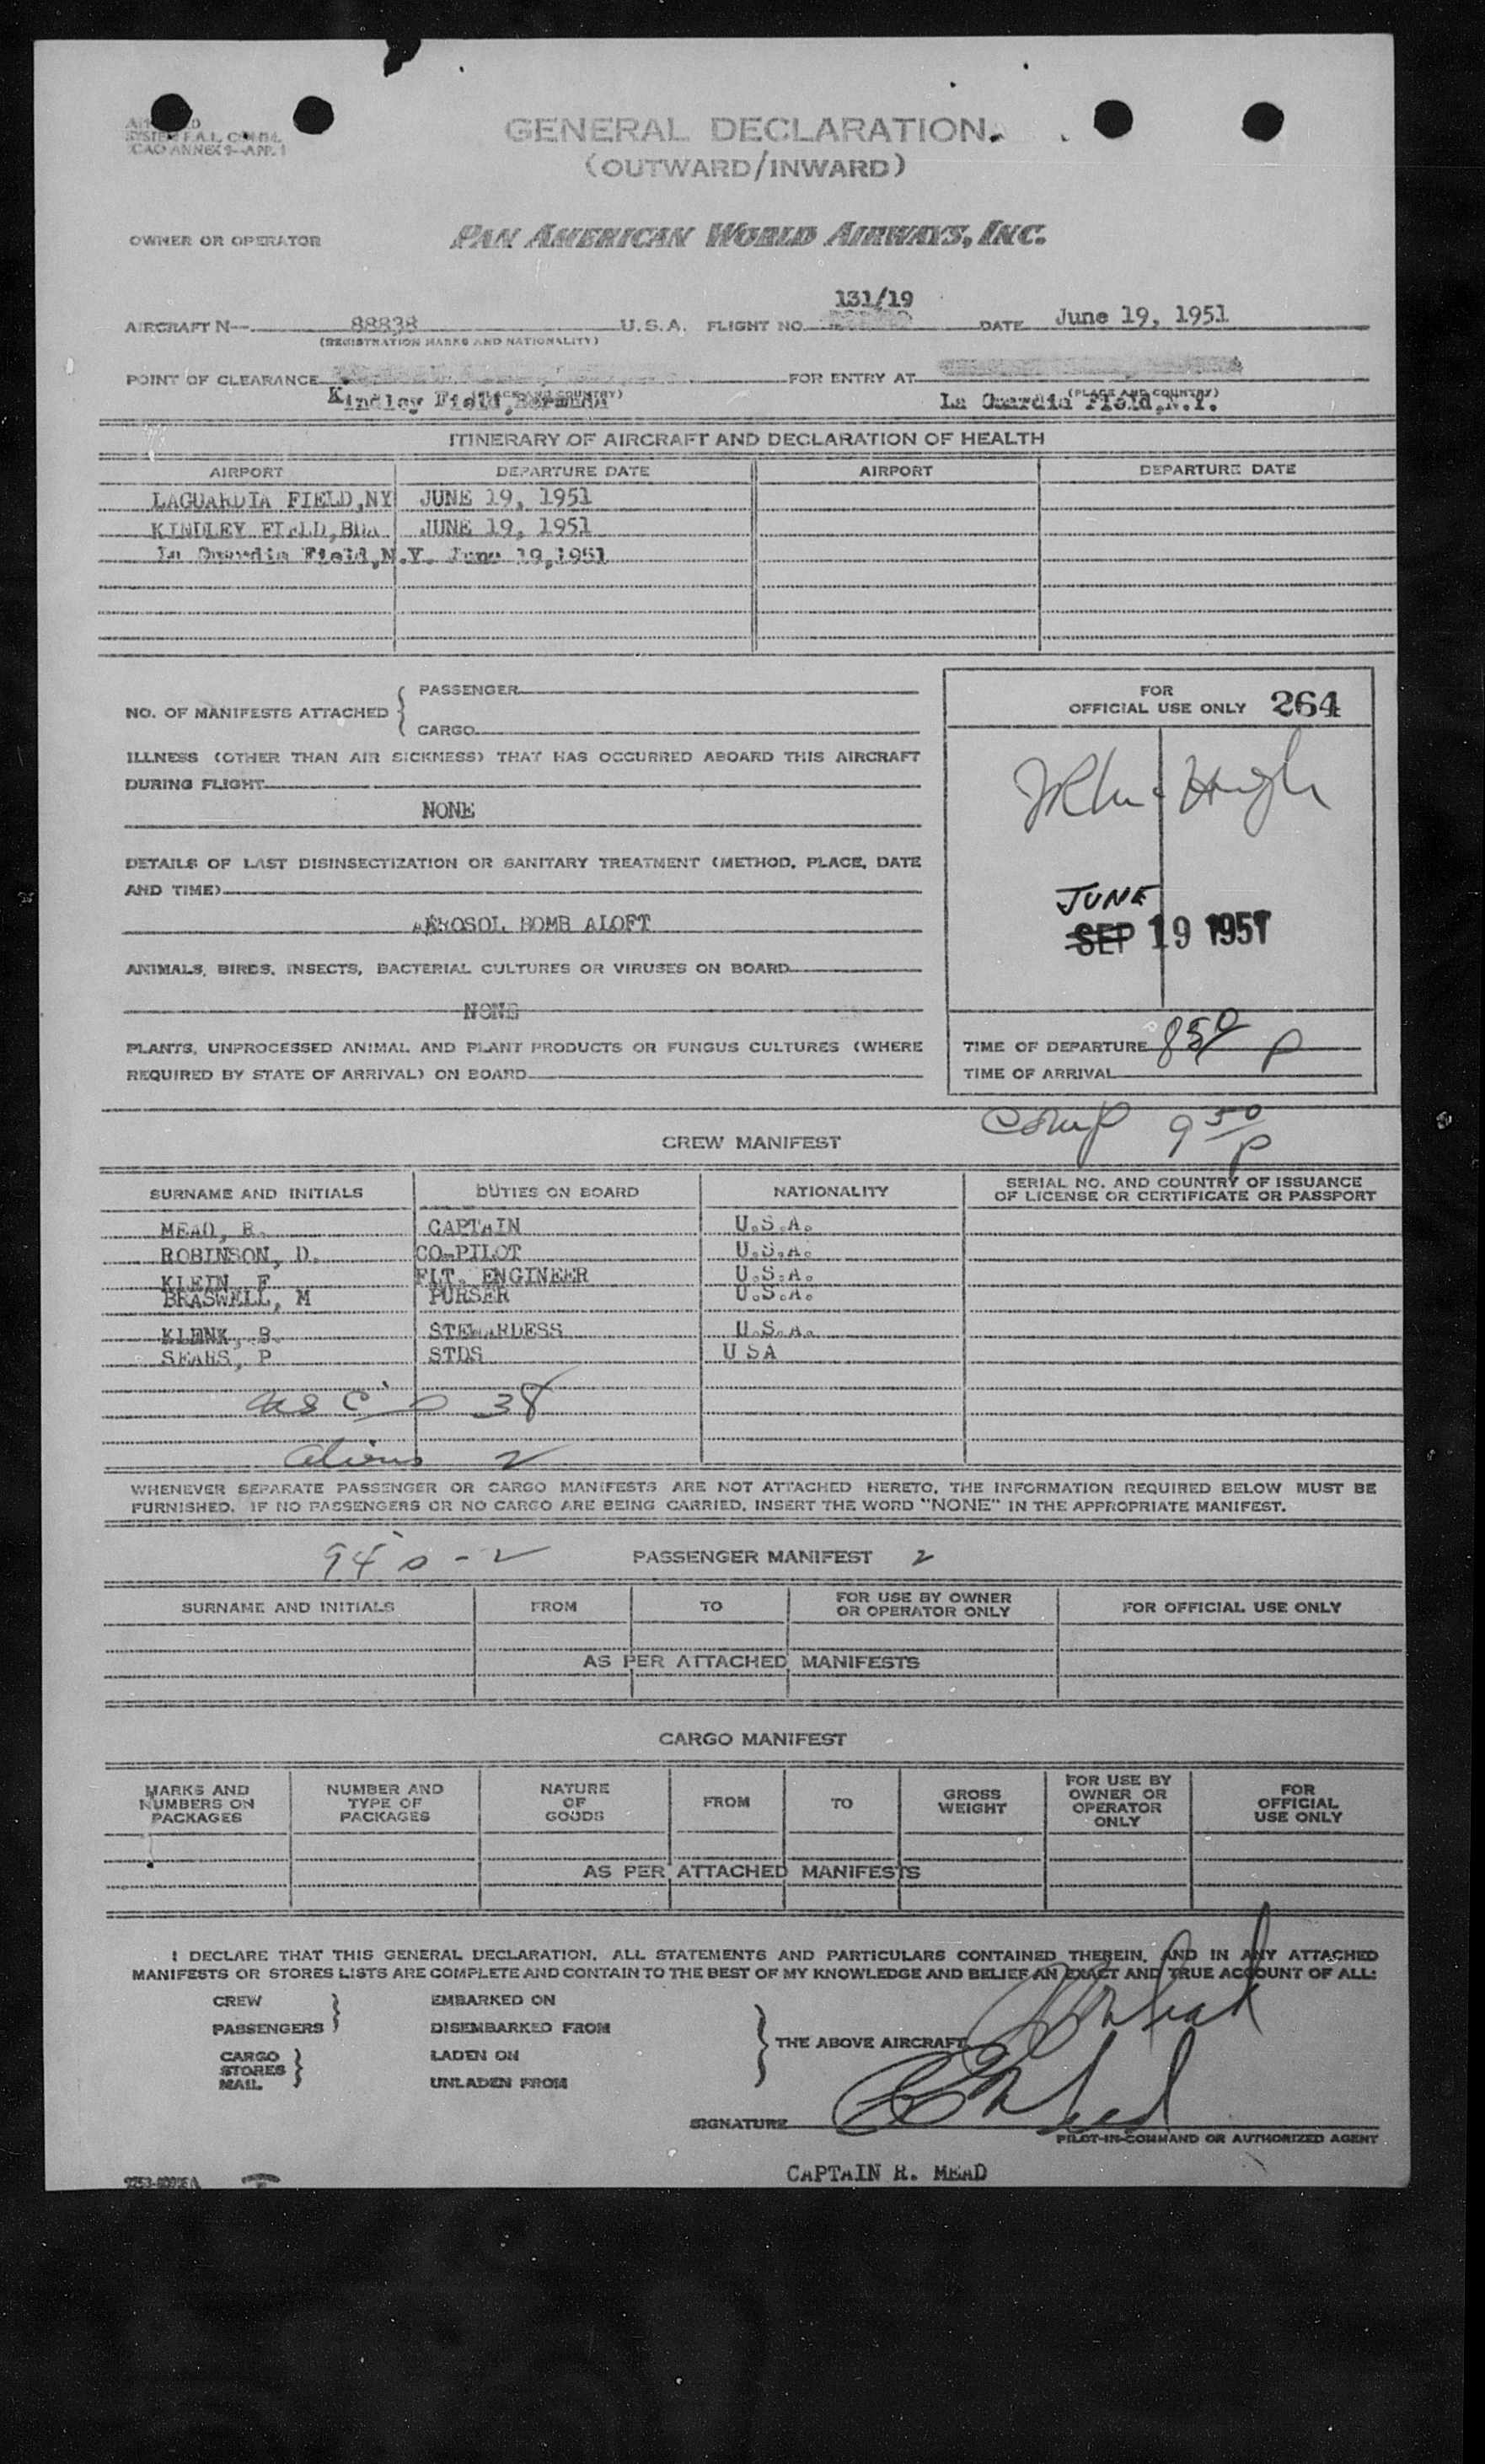 GENERAL DECLARATION
(OUTWARD/INWARD)
ICAO ANNEX 9—APP. 1
OWNER OR OPERATOR PAN AMERICAN WORLD AIRWAYS, INC.
131/19
AIRCRAFT N— 88838 U.S.A. FLIGHT NO. DATE June 19, 1951
(REGISTRATION MARKS AND NATIONALITY)
POINT OF CLEARANCE FOR ENTRY AT
Kindley Field, Bermuda (PLACE AND COUNTRY) La Guardia Field, N.Y. (PLACE AND COUNTRY)
ITINERARY OF AIRCRAFT AND DECLARATION OF HEALTH
AIRPORT DEPARTURE DATE AIRPORT DEPARTURE DATE
LAGUARDIA FIELD,NY JUNE 19, 1951
KINDLEY FIELD,BDA JUNE 19, 1951
La Guardia Field,N.Y. June 19,1951
NO. OF MANIFESTS ATTACHED { PASSENGER
CARGO
ILLNESS (OTHER THAN AIR SICKNESS) THAT HAS OCCURRED ABOARD THIS AIRCRAFT
DURING FLIGHT
NONE
DETAILS OF LAST DISINSECTIZATION OR SANITARY TREATMENT (METHOD, PLACE, DATE
AND TIME)
AEROSOL BOMB ALOFT
ANIMALS, BIRDS, INSECTS, BACTERIAL CULTURES OR VIRUSES ON BOARD
NONE
PLANTS, UNPROCESSED ANIMAL AND PLANT PRODUCTS OR FUNGUS CULTURES (WHERE
REQUIRED BY STATE OF ARRIVAL) ON BOARD
FOR
OFFICIAL USE ONLY 264
JUNE
SEP 19 1951
TIME OF DEPARTURE 850 P
TIME OF ARRIVAL
Comp 9 50 P
CREW MANIFEST
SURNAME AND INITIALS DUTIES ON BOARD NATIONALITY SERIAL NO. AND COUNTRY OF ISSUANCE
OF LICENSE OR CERTIFICATE OR PASSPORT
MEAD, R. CAPTAIN U.S.A.
ROBINSON, D. CO-PILOT U.S.A.
KLEIN, F FLT. ENGINEER U.S.A.
BRASWELL, M PURSER U.S.A.
KLENK, B. STEWARDESS U.S.A.
SEARS, P STDS U SA
US C 38
Aliens 2
WHENEVER SEPARATE PASSENGER OR CARGO MANIFESTS ARE NOT ATTACHED HERETO, THE INFORMATION REQUIRED BELOW MUST BE
FURNISHED. IF NO PASSENGERS OR NO CARGO ARE BEING CARRIED, INSERT THE WORD "NONE" IN THE APPROPRIATE MANIFEST.
PASSENGER MANIFEST 2
SURNAME AND INITIALS FROM TO FOR USE BY OWNER
OR OPERATOR ONLY FOR OFFICIAL USE ONLY
AS PER ATTACHED MANIFESTS
CARGO MANIFEST
MARKS AND
NUMBERS ON
PACKAGES
NUMBER AND
TYPE OF
PACKAGES
NATURE
OF
GOODS
FROM
TO
GROSS
WEIGHT
FOR USE BY
OWNER OR
OPERATOR
ONLY
FOR
OFFICIAL
USE ONLY
AS PER ATTACHED MANIFESTS
I DECLARE THAT THIS GENERAL DECLARATION, ALL STATEMENTS AND PARTICULARS CONTAINED THEREIN, AND IN ANY ATTACHED
MANIFESTS OR STORES LISTS ARE COMPLETE AND CONTAIN TO THE BEST OF MY KNOWLEDGE AND BELIEF AN EXACT AND TRUE ACCOUNT OF ALL:
CREW EMBARKED ON
PASSENGERS DISEMBARKED FROM
THE ABOVE AIRCRAFT
CARGO LADEN ON
STORES
MAIL UNLADEN FROM
SIGNATURE
PILOT-IN-COMMAND OR AUTHORIZED AGENT
CAPTAIN R. MEAD